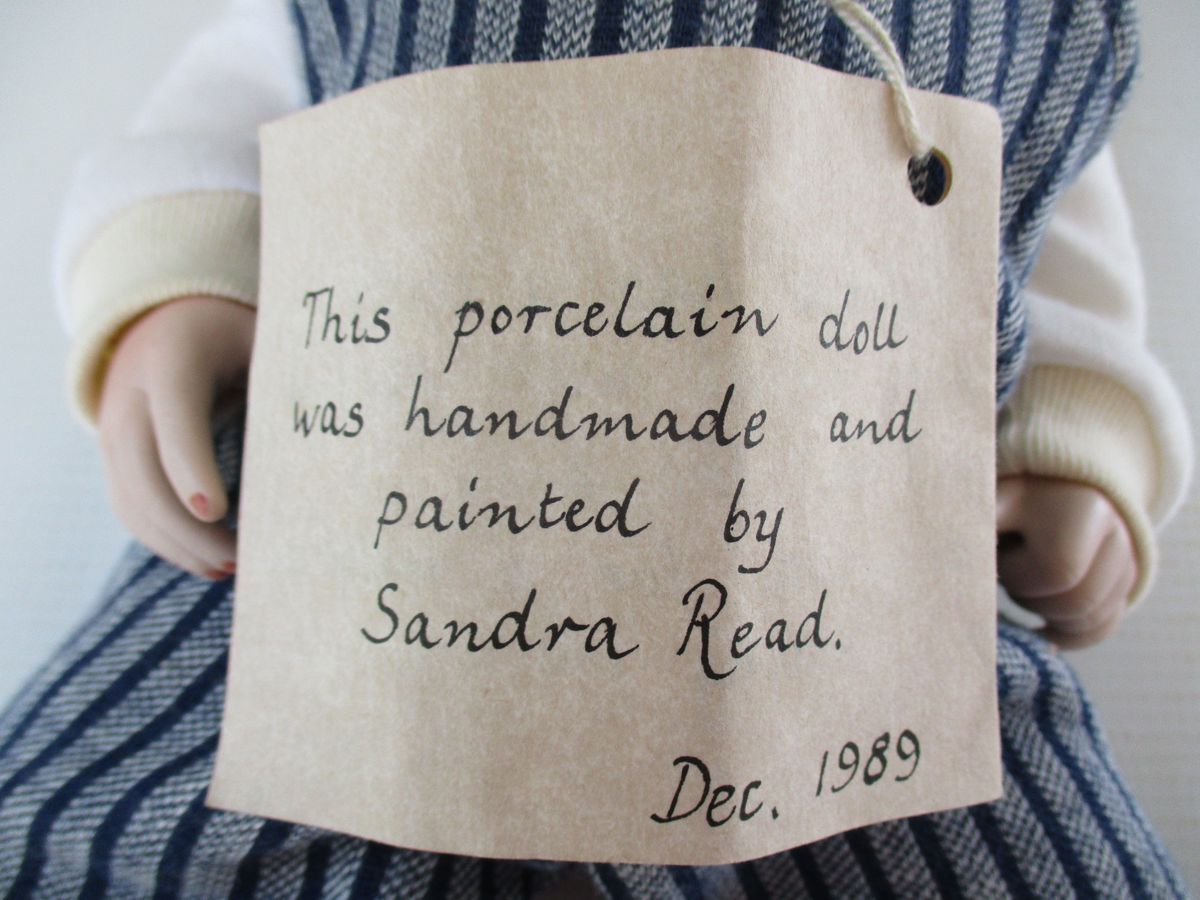 This porcelain doll
was handmade and
painted by
Sandra Read.
Dec. 1989